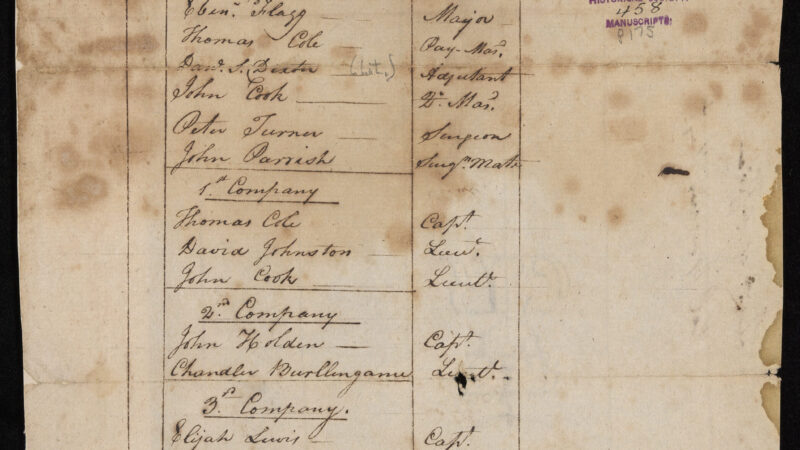 Eben.r Flagg Major
Thomas Cole Pay-Mas.r
Dav.d S. Dexter Adjutant
John Cook Q.r Mas.r
Peter Turner Surgeon
John Parrish Surg.n Mate
1.st Company
Thomas Cole Cap.t
David Johnston Lieu.t
John Cook Lieut.
2.nd Company
John Holden Cap.t
Chandler Burllengame Lieut.
3.d Company.
Elijah Lewis Cap.t
HISTORICAL
458
MANUSCRIPTS
P175